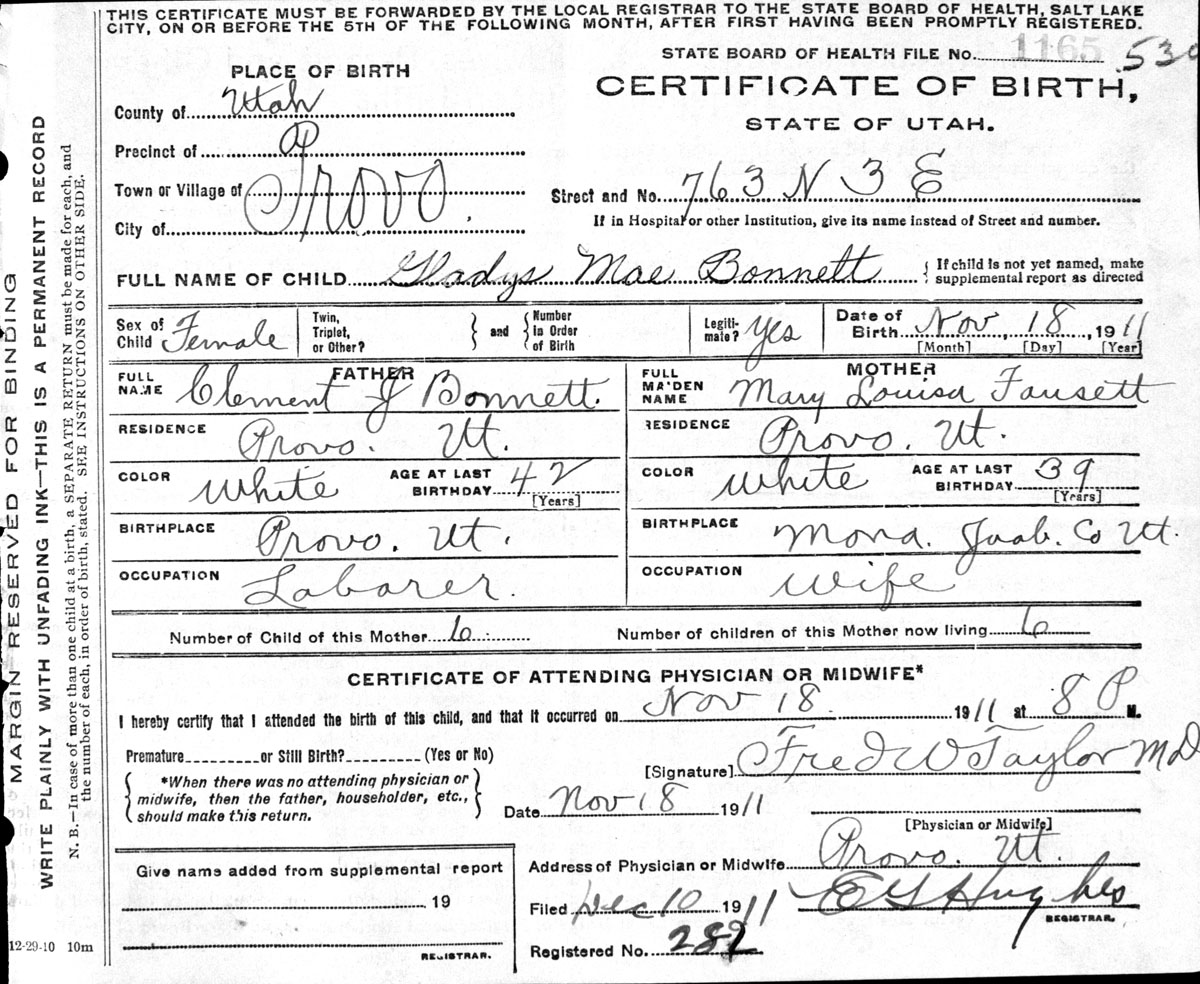 THIS CERTIFICATE MUST BE FORWARDED BY THE LOCAL REGISTRAR TO THE STATE BOARD OF HEALTH, SALT LAKE
CITY, ON OR BEFORE THE 5TH OF THE FOLLOWING MONTH, AFTER FIRST HAVING BEEN PROMPTLY REGISTERED.
STATE BOARD OF HEALTH FILE No. 1165 530
PLACE OF BIRTH
CERTIFICATE OF BIRTH,
STATE OF UTAH.
County of Utah
Precinct of
Town or Village of Provo.
City of
Street and No. 763 N 3 E
If in Hospital or other Institution, give its name instead of Street and number.
FULL NAME OF CHILD Gladys Mae Bonnett { If child is not yet named, make
supplemental report as directed
Sex of
Child Female
Twin,
Triplet,
or Other? } and { Number
in Order
of Birth
Legiti-
mate? Yes
Date of
Birth Nov, 18, 1911
[Month] [Day] [Year]
FATHER
FULL
NAME Clement J Bonnett.
MOTHER
FULL
MAIDEN
NAME Mary Louisa Fausett
RESIDENCE Provo. Ut.
RESIDENCE Provo. Ut.
COLOR White AGE AT LAST
BIRTHDAY 42
[Years]
COLOR White AGE AT LAST
BIRTHDAY 39
[Years]
BIRTHPLACE Provo. Ut.
BIRTHPLACE Mona. Juab. Co Ut.
OCCUPATION Laborer.
OCCUPATION Wife
Number of Child of this Mother 6 Number of children of this Mother now living 6
CERTIFICATE OF ATTENDING PHYSICIAN OR MIDWIFE*
I hereby certify that I attended the birth of this child, and that it occurred on Nov 18. 1911 at 8 P M.
Premature or Still Birth? (Yes or No)
{ *When there was no attending physician or
midwife, then the father, householder, etc.,
should make this return. }
[Signature] Fred W Taylor MD
Date Nov 18 1911
[Physician or Midwife]
Give name added from supplemental report
19
REGISTRAR.
Address of Physician or Midwife Provo. Ut.
Filed Dec 10 1911 E G Hughes
REGISTRAR.
Registered No. 282
12-29-10 10m
MARGIN RESERVED FOR BINDING
WRITE PLAINLY WITH UNFADING INK—THIS IS A PERMANENT RECORD
N. B.—In case of more than one child at a birth, a SEPARATE RETURN must be made for each, and
the number of each, in order of birth, stated. SEE INSTRUCTIONS ON OTHER SIDE.